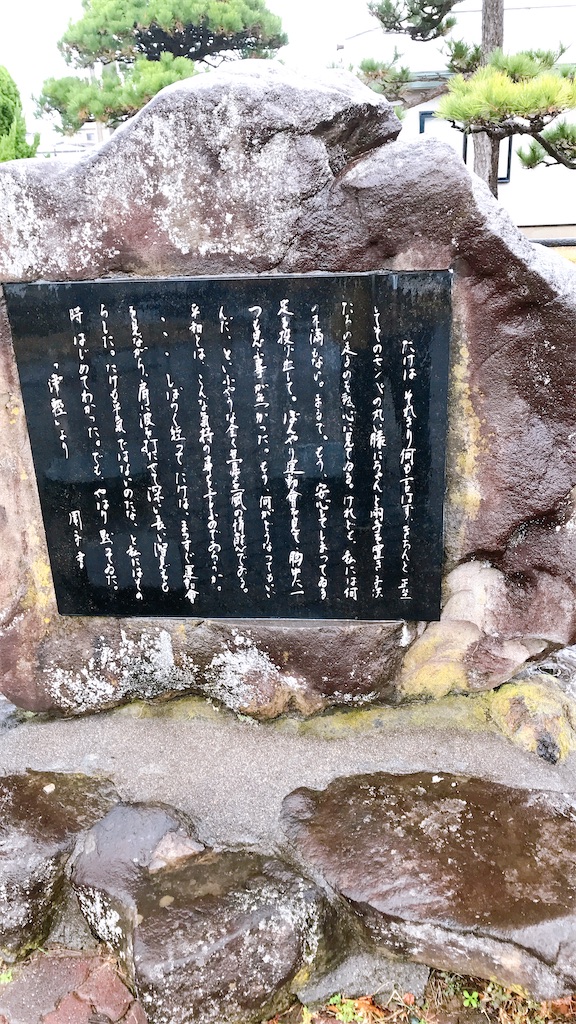 たけは それきり何も言はず、きちんと正座
してそのモンペの丸い膝にちゃんと両手を置き、子供
たちの走るのを熱心に見てゐる。けれども、私には何
の不満もない。まるで、もう、安心してしまってゐる。
足を投げ出して、ぼんやり運動會を見て、胸中に一
つも思ふ事が無かった。もう、何がどうなってもいい
んだ、といふやうな全く無憂無風の情態である。
平和とは、こんな気持の事を言ふのであらうか。
、、、しばらく経ってたけは、まっすぐ運動會
を見ながら、肩に波を打たせて深い長い溜息をも
らした。たけも平気ではないのだな、と私にはその
時はじめてわかった。でも、やはり黙ってゐた。
「津軽」より